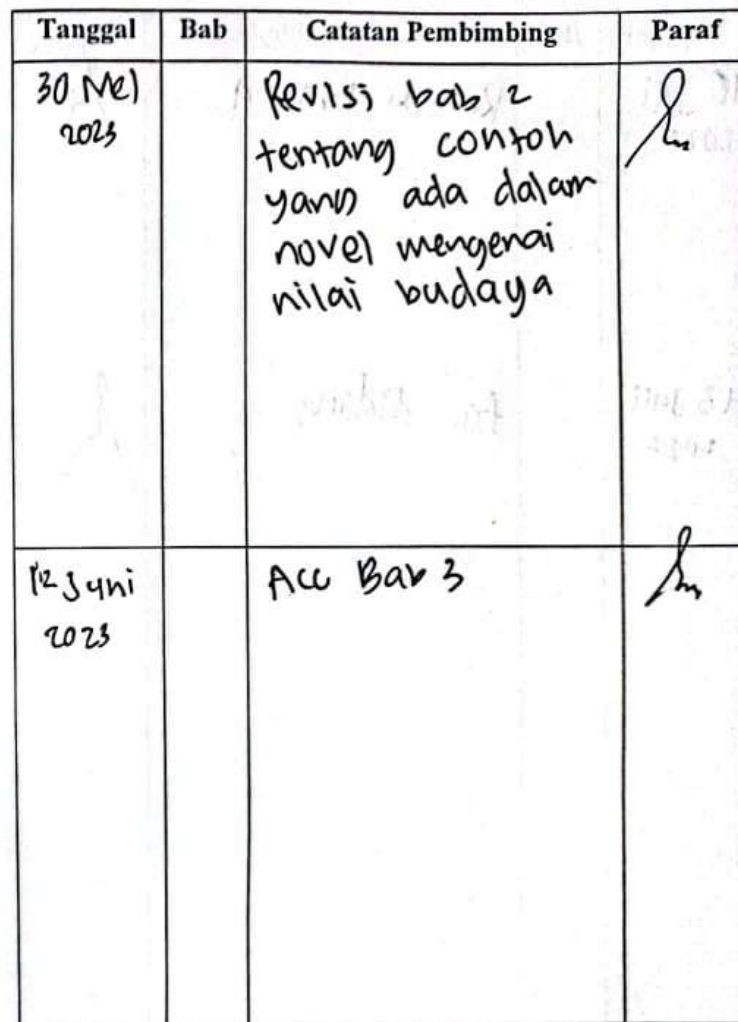 Tanggal Bab Catatan Pembimbing Paraf
30 Mei Revisi bab 2
2023 tentang contoh
yang ada dalam
novel mengenai
nilai budaya
12 Juni Acc Bab 3
2023